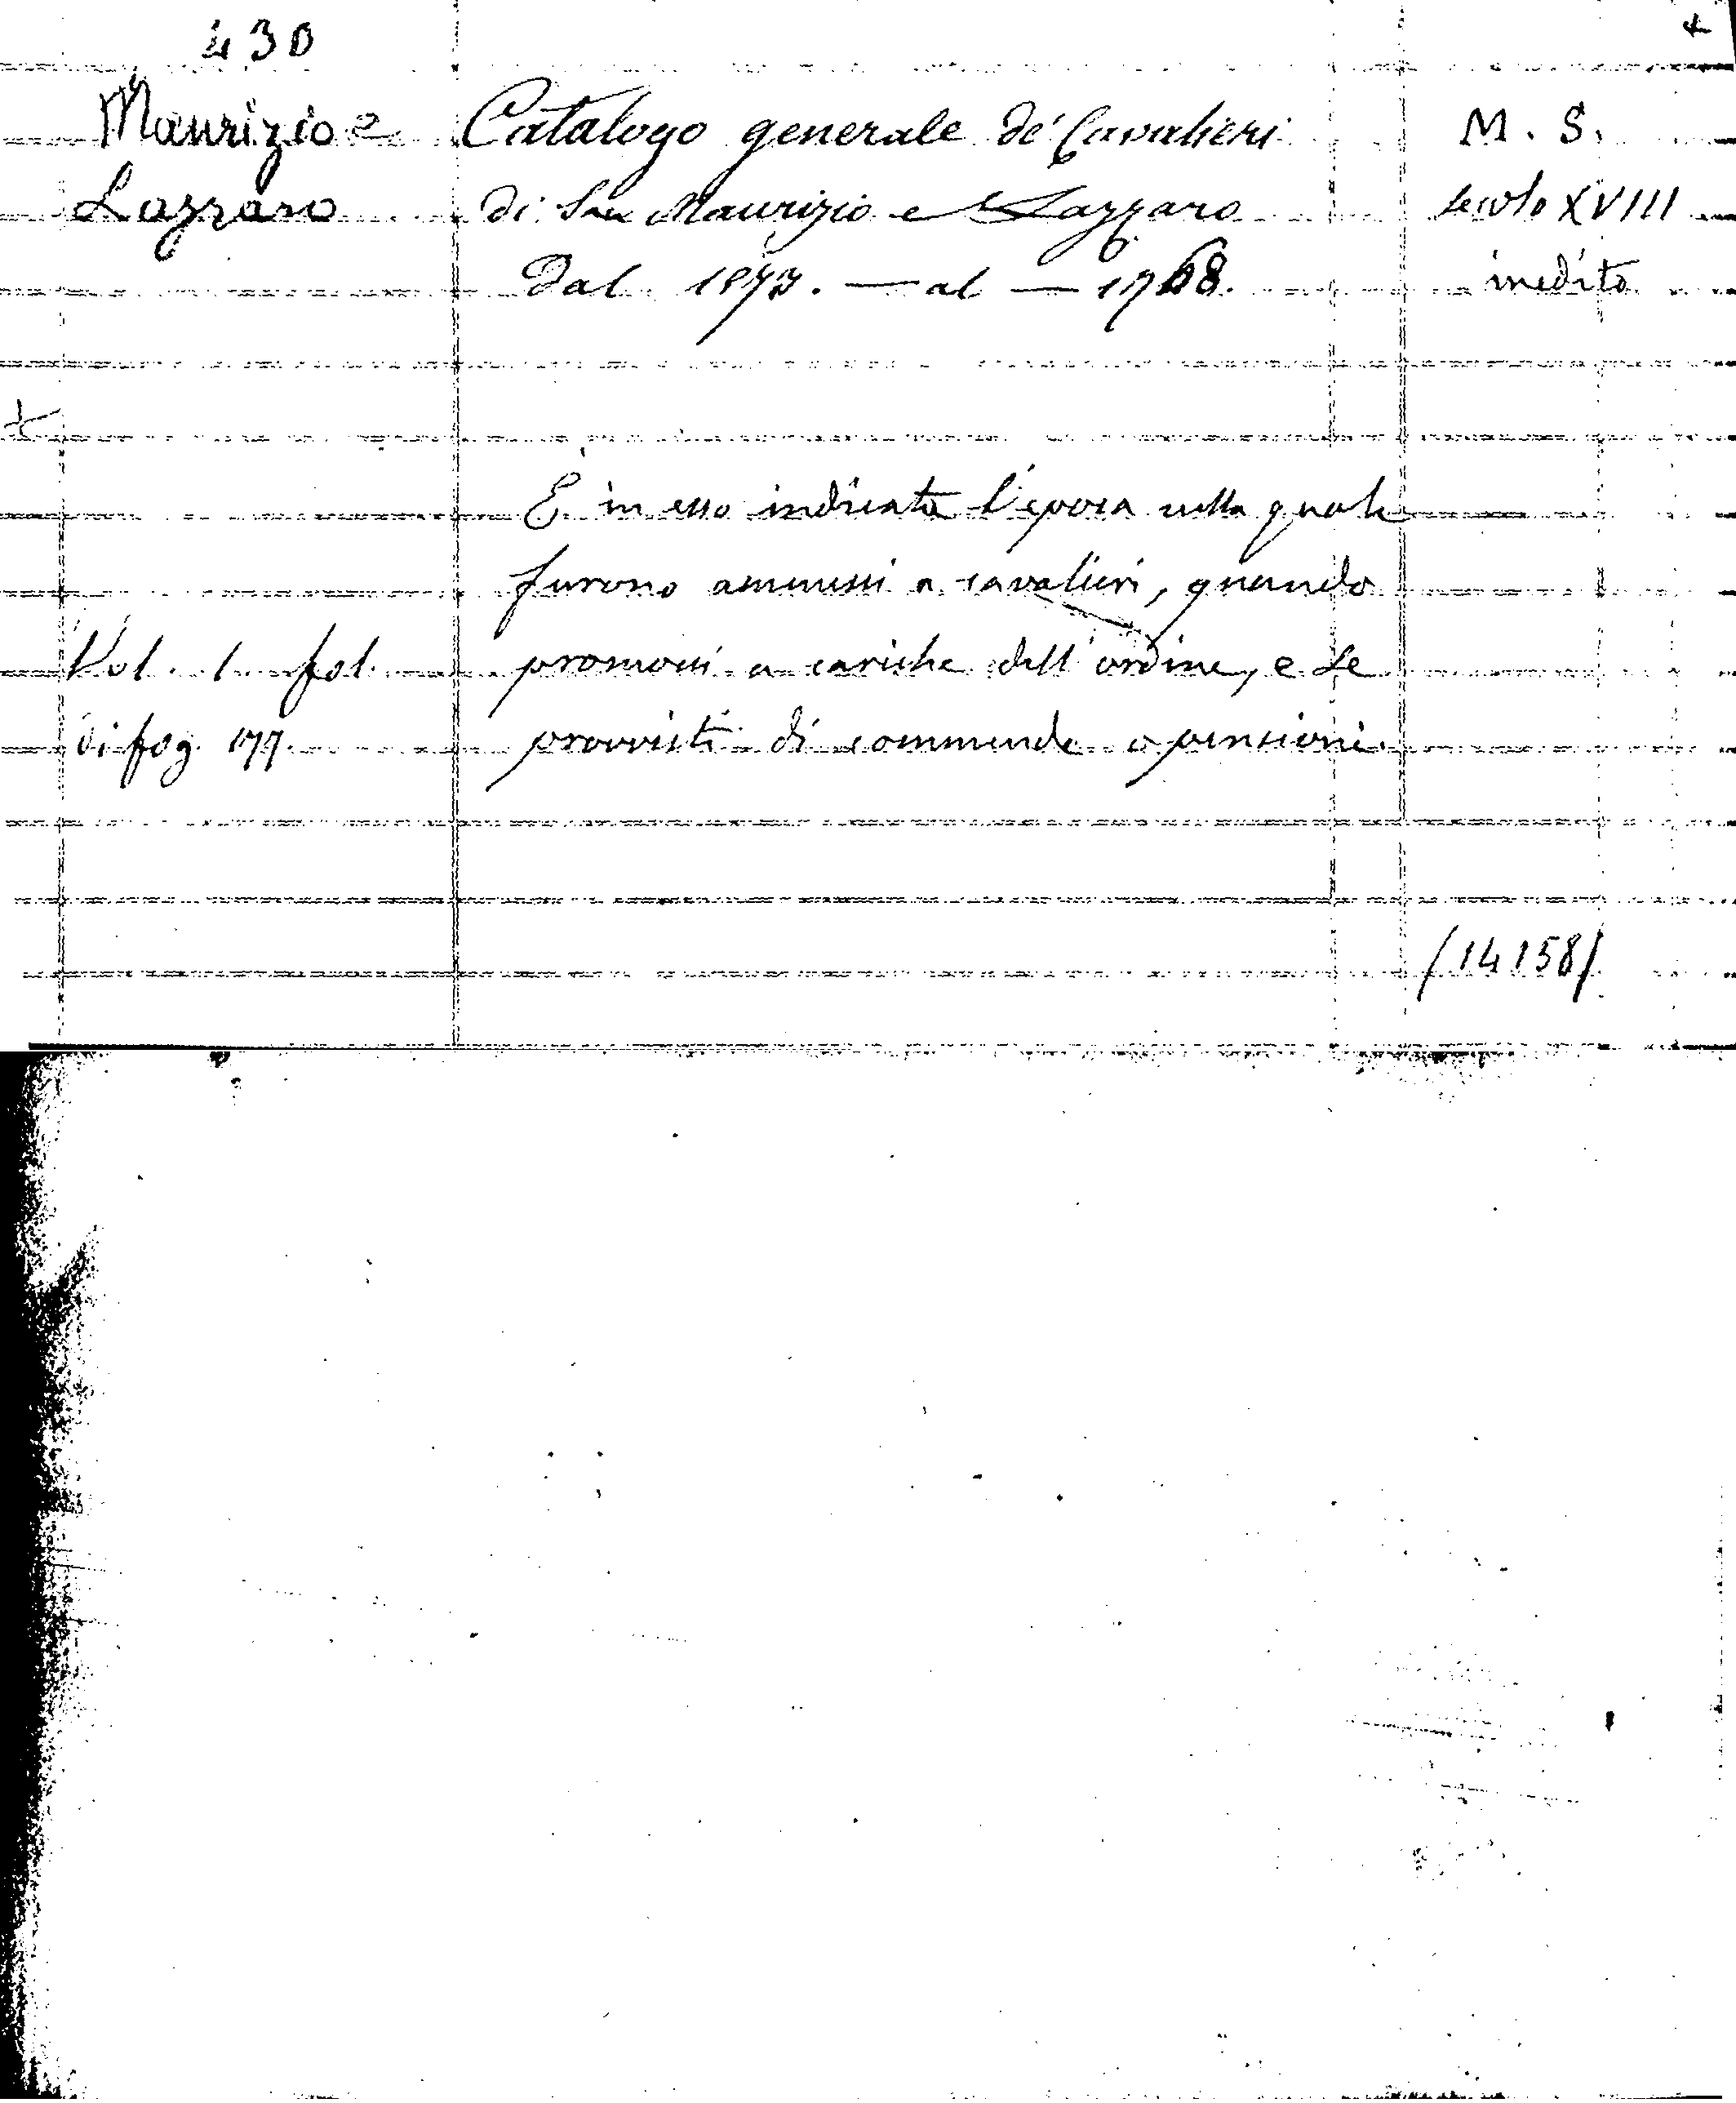 430
Maurizio e
Lazzaro
Catalogo generale de' Cavalieri
di San Maurizio e Lazzaro
Dal 1573. — al — 1768.
M. S.
secolo XVIII
inedito
È in esso indicata l'epoca nella quale
furono ammessi a cavalieri, quando
promossi a cariche dell'ordine, e se
provvisti di commende o pensioni.
Vol. 1. fol.
di fog. 177.
(14158)